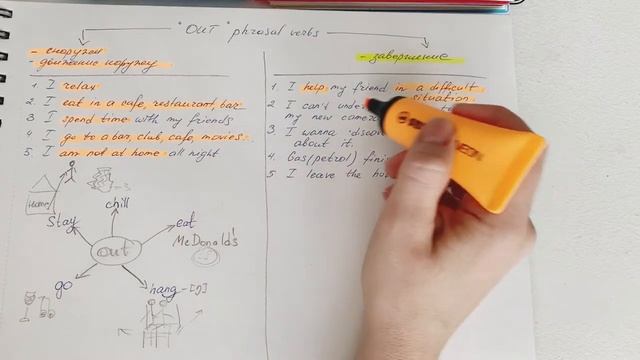 "OUT" phrasal verbs
- снаружи
- движение наружу
1 I relax
2 I eat in a cafe, restaurant, bar
3 I spend time with my friends
4 I go to a bar, club, cafe, movies...
5 I am not at home all night
Home
Stay
chill
eat
McDonald's
out
go
hang - [ŋ]
- завершение
1. I help my friend in a difficult situation
2 I can't
my new camera
3 I wanna
about it.
4 Gas (petrol)
5 I leave the